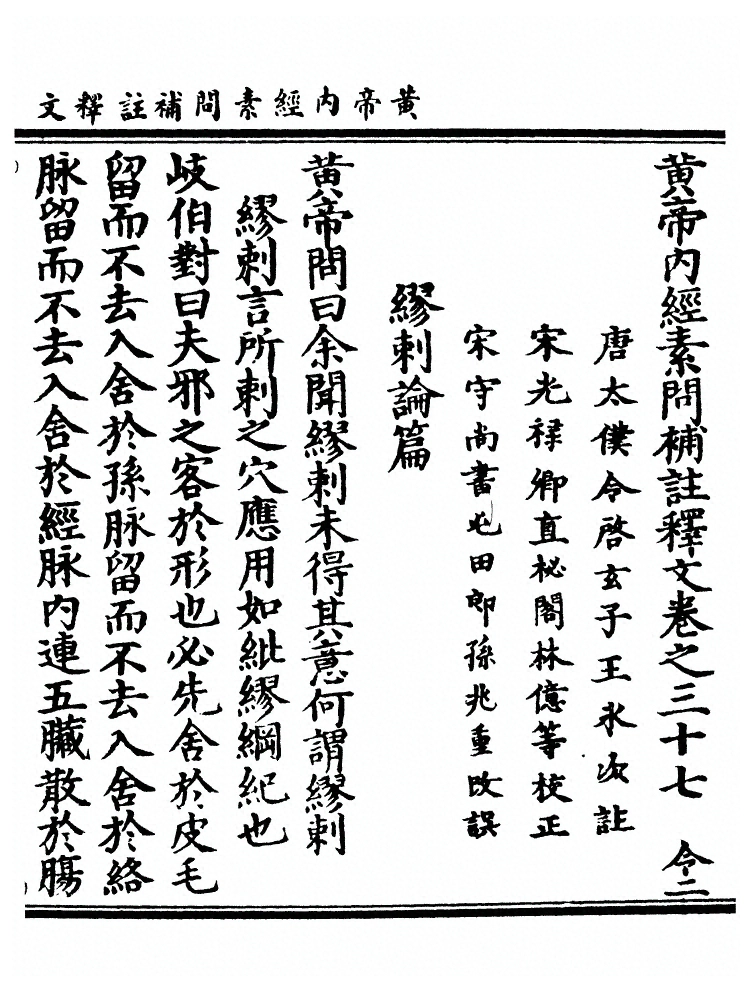 黃帝內經素問補註釋文
黃帝內經素問補註釋文卷之三十七　令二
唐太僕令啓玄子王冰次註
宋光祿卿直祕閣林億等校正
宋守尚書屯田郎孫兆重改誤
繆刺論篇
黃帝問曰余聞繆刺未得其意何謂繆刺
繆刺言所刺之穴應用如紕繆綱紀也
岐伯對曰夫邪之客於形也必先舍於皮毛
留而不去入舍於孫脉留而不去入舍於絡
脉留而不去入舍於經脉內連五臟散於腸